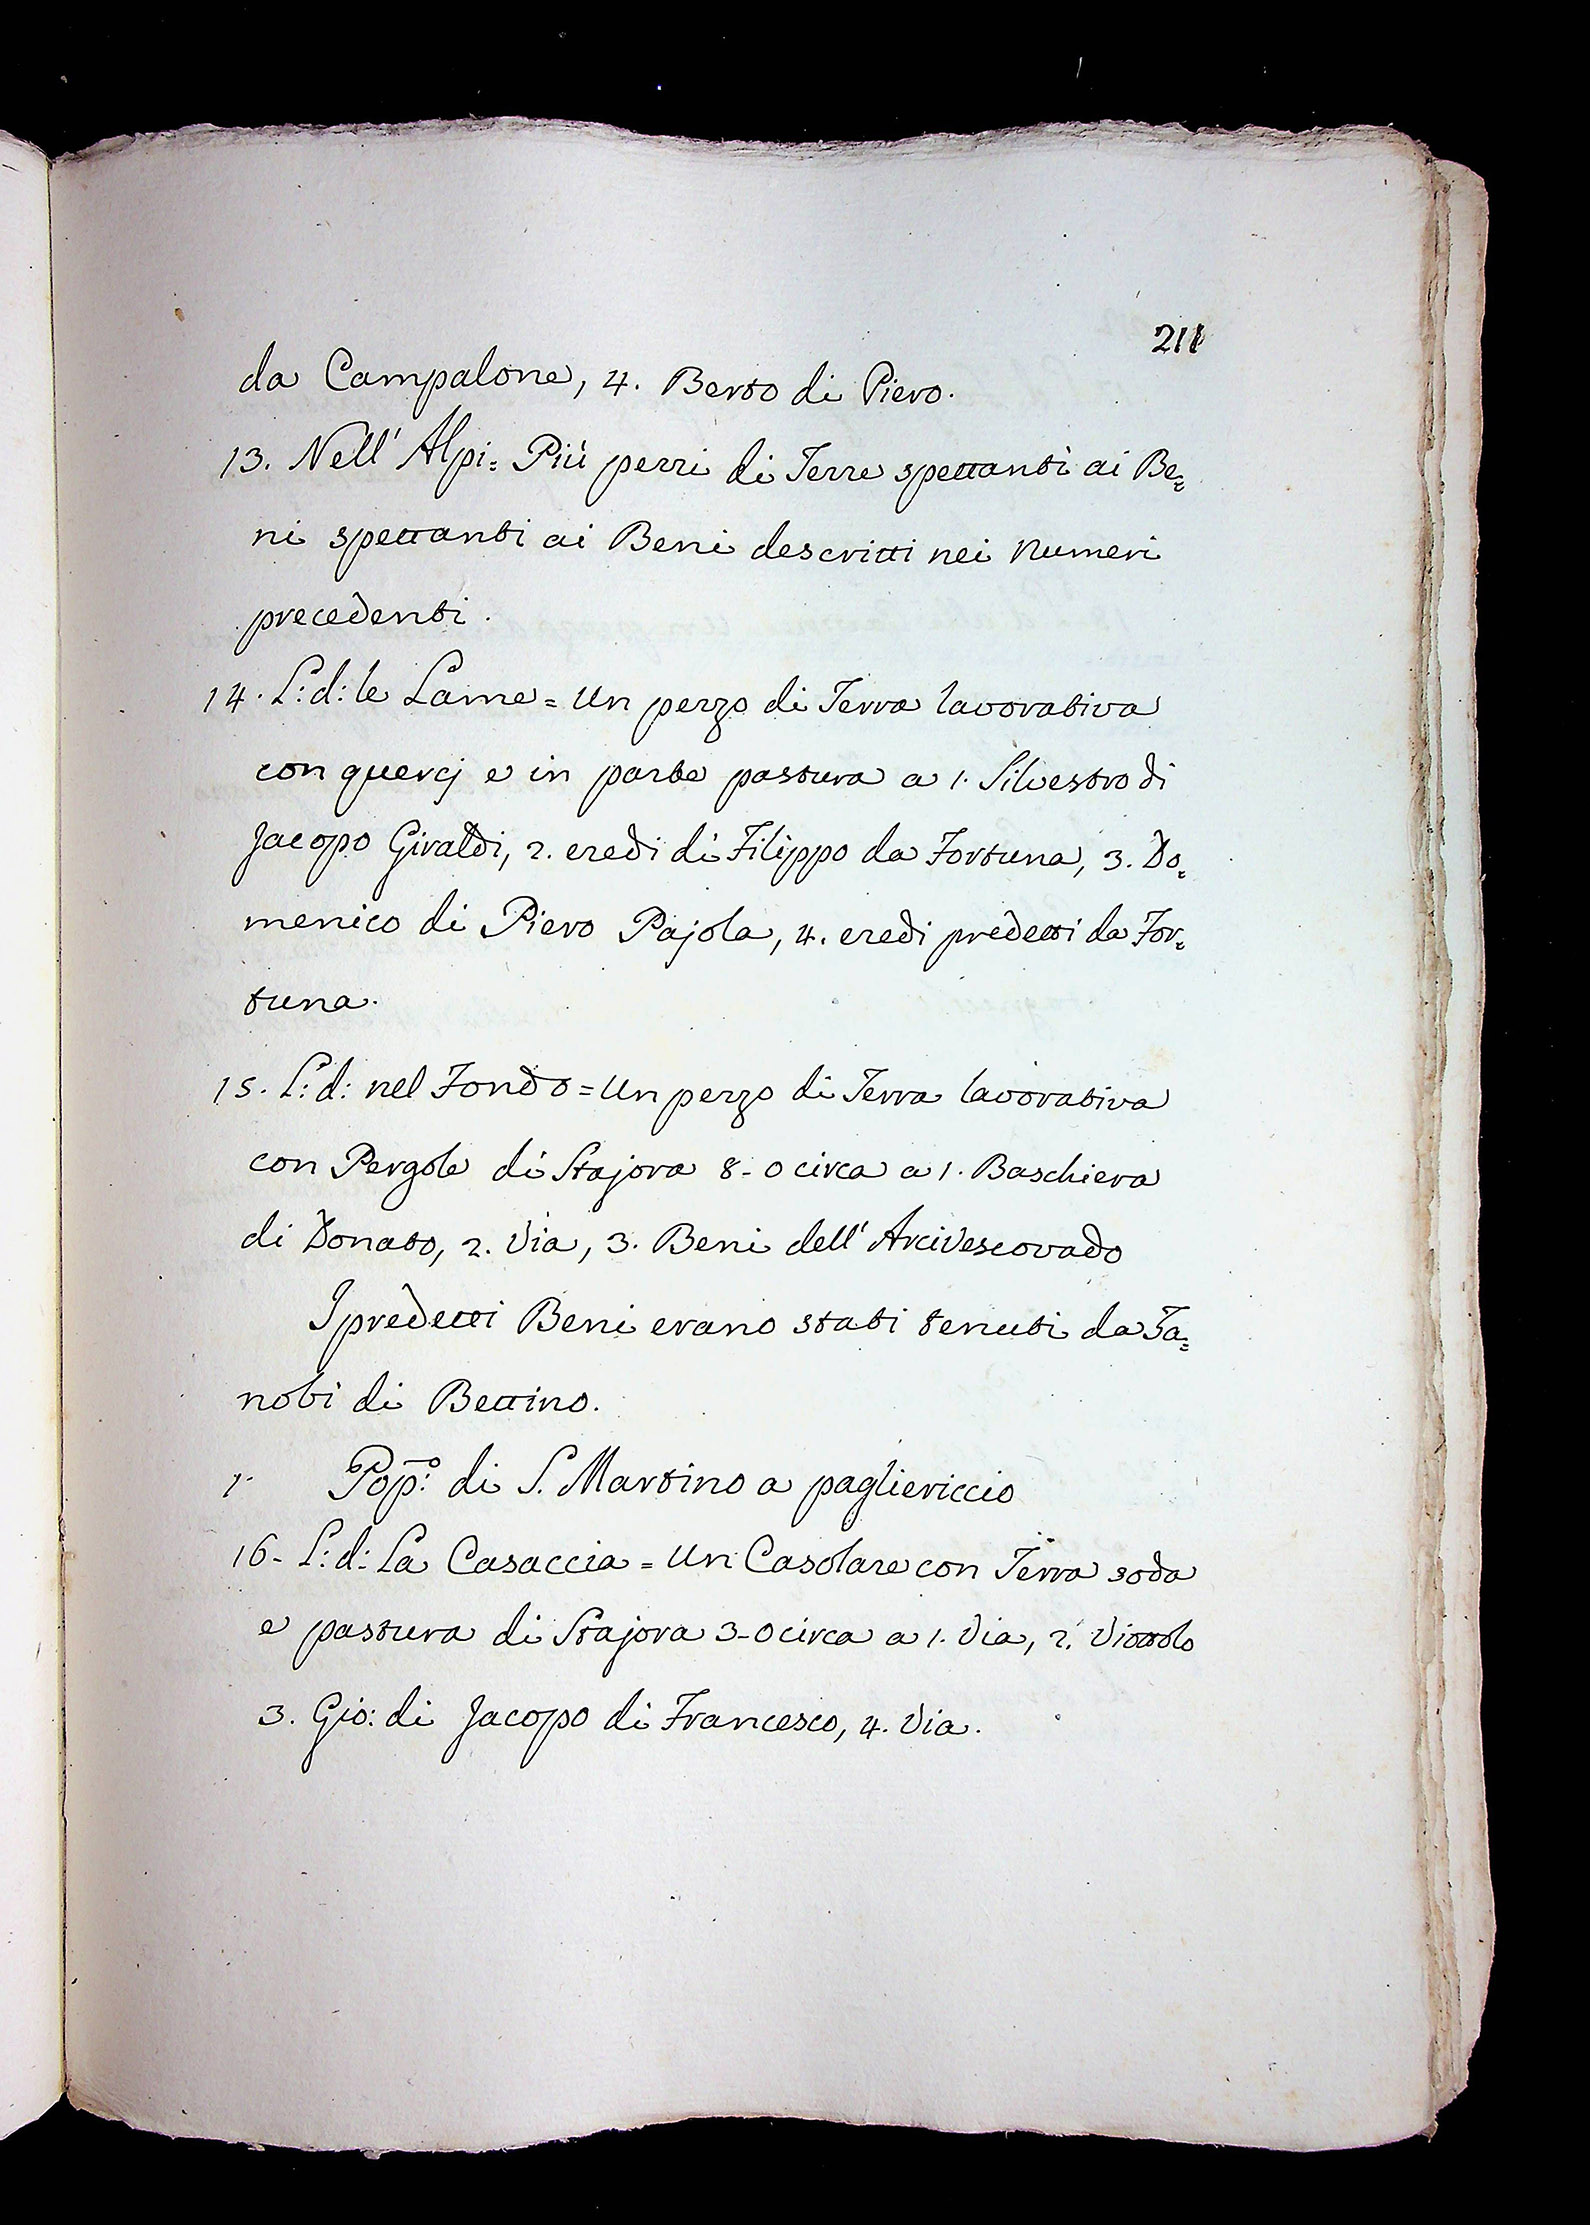 211
da Campalone, 4. Berto di Piero.
13. Nell' Alpi= Più pezzi di Terre spettanti ai Be=
ni spettanti ai Beni descritti nei numeri
precedenti.
14. L: d: le Lame= Un pezzo di Terra lavorativa
con quercj e in parte pastura a 1. Silvestro di
Jacopo Giraldi, 2. eredi di Filippo da Fortuna, 3. Do=
menico di Piero Pajola, 4. eredi predetti da For=
tuna.
15. L: d: nel Fondo= Un pezzo di Terra lavorativa
con Pergole di Stajora 8-0 circa a 1. Baschiera
di Donato, 2. Via, 3. Beni dell' Arcivescovado
I predetti Beni erano stati tenuti da Za=
nobi di Bettino.
1. Pop:º di S. Martino a pagliericcio
16- L: d: La Casaccia= Un Casolare con Terra soda
e pastura di Stajora 3-0 circa a 1. Via, 2. Viottolo
3. Gio: di Jacopo di Francesco, 4. Via.